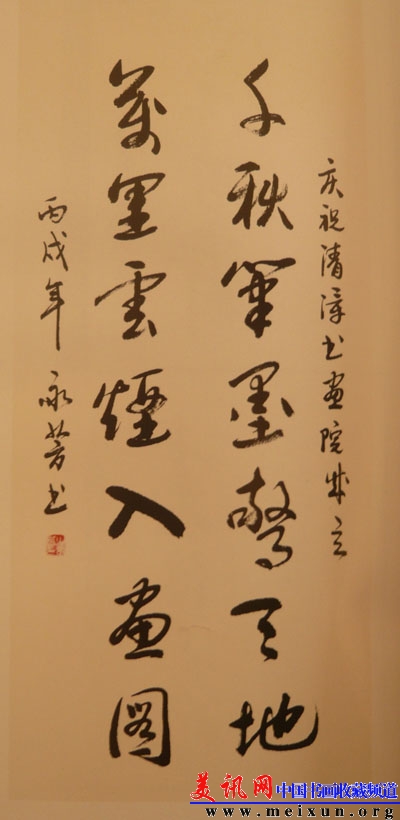 庆祝清漳书画院成立
千秋筆墨驚天地
萬里雲煙入畫圖
丙戌年 永芳书
美讯网 中国书画收藏频道
www.meixun.org